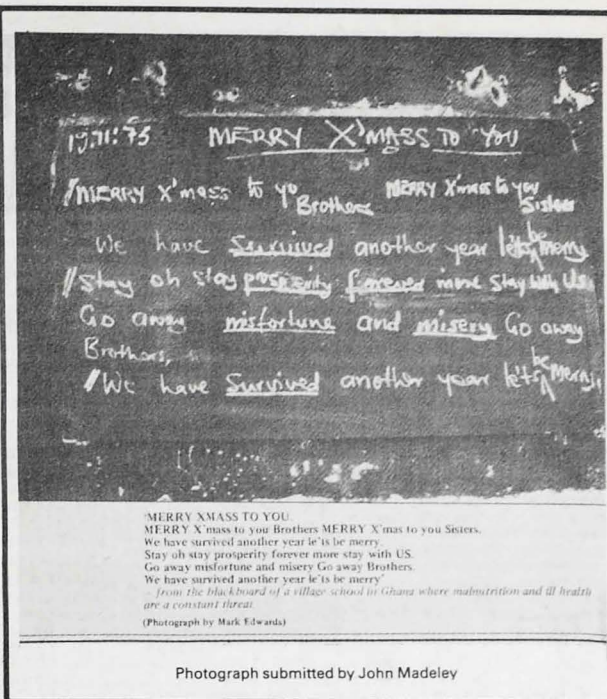 19:11:75 MERRY X'MASS TO YOU
MERRY X'mass to yo Brothers MERRY X'mas to you Sisters
We have Survived another year let's be merry
Stay oh stay prosperity forever more stay with US
Go away misfortune and misery Go away
Brothers,
We have Survived another year let's be merry
'MERRY XMASS TO YOU
MERRY X'mass to you Brothers MERRY X'mas to you Sisters.
We have survived another year le'ts be merry.
Stay oh stay prosperity forever more stay with US.
Go away misfortune and misery Go away Brothers.
We have survived another year le'ts be merry'
– from the blackboard of a village school in Ghana where malnutrition and ill health
are a constant threat
(Photograph by Mark Edwards)
Photograph submitted by John Madeley